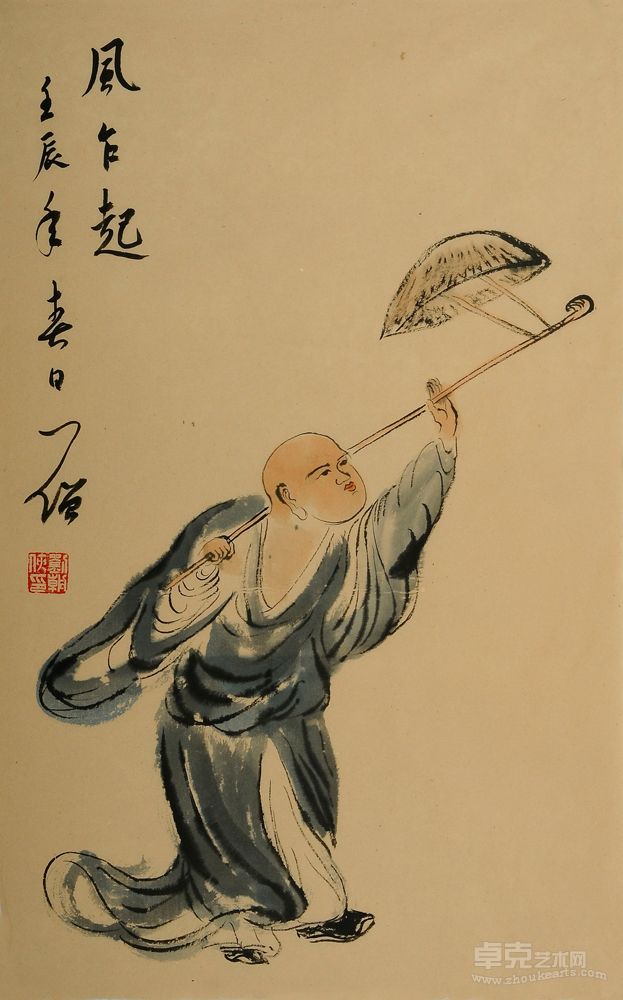 風乍起
壬辰年春日一僧
卓克艺术网
www.zhoukearts.com